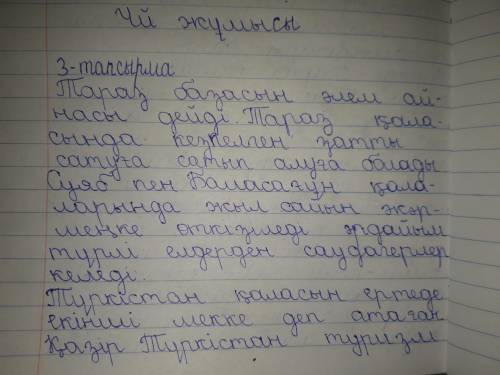 Үй жұмысы
3-тапсырма
Тараз базасын әлем ай-
насы дейді. Тараз қала-
сында кезкелген затты
сатуға сатып алуға болады
Суяб пен Баласағұн қала-
ларында жыл сайын жәр-
меңке өткізіледі әрдайым
түрлі елдерден саудагерлер
келеді.
Түркістан қаласын ертеде
екінші мекке деп атаған
Қазір Түркістан туризм